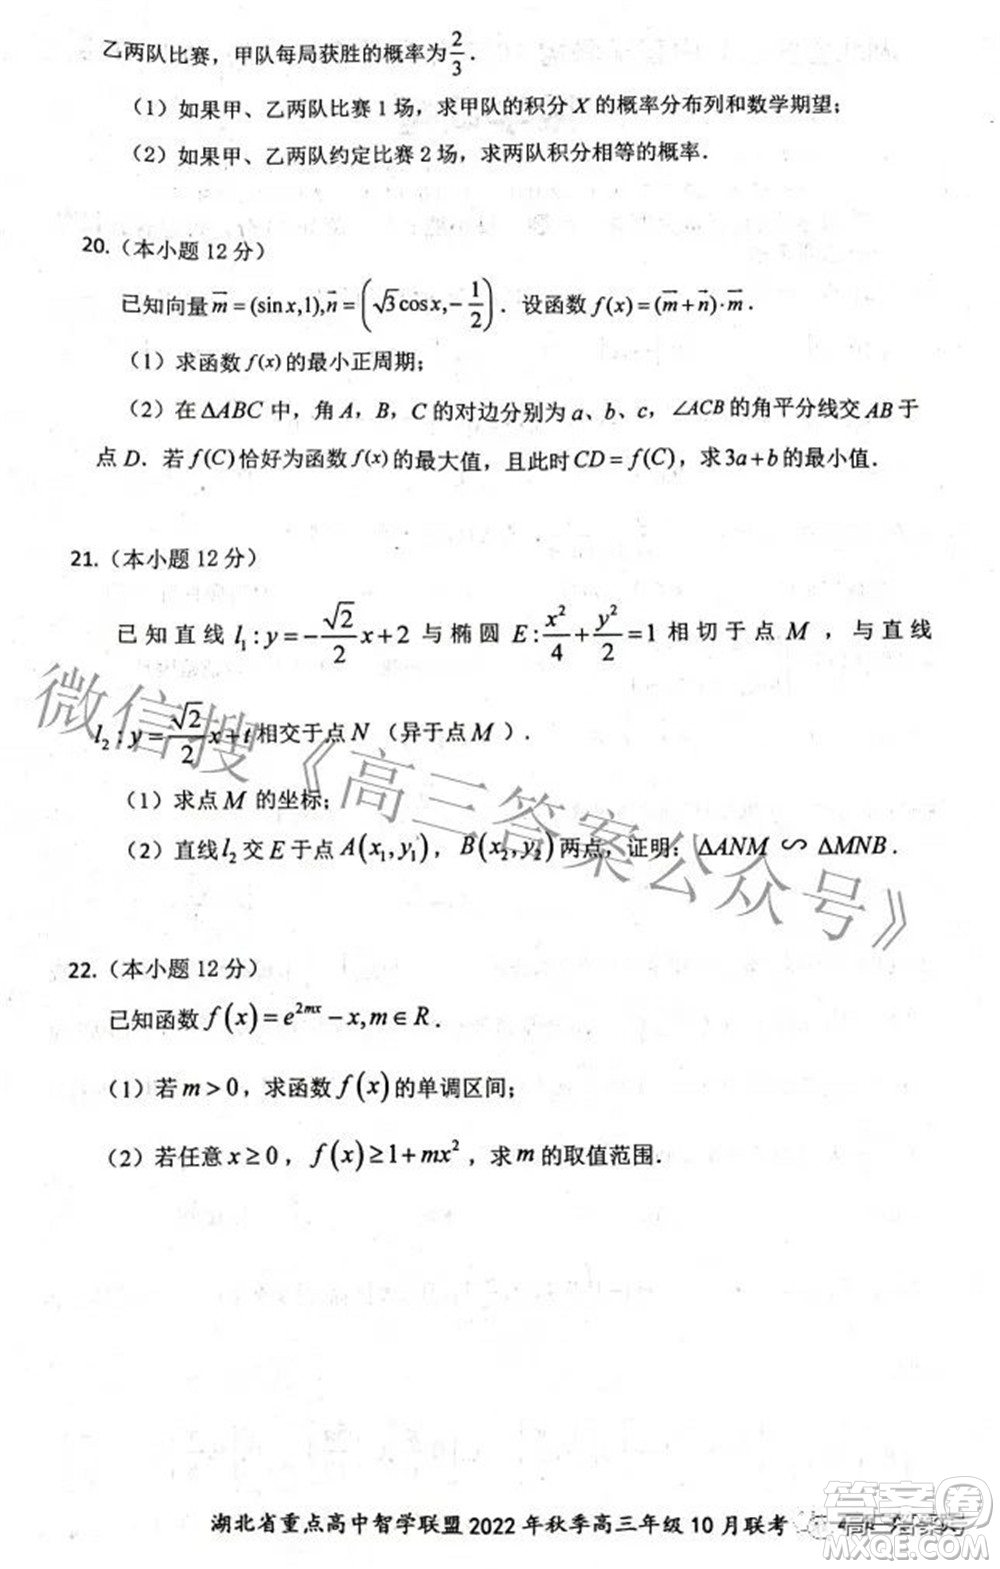 乙两队比赛，甲队每局获胜的概率为2/3．
（1）如果甲、乙两队比赛 1 场，求甲队的积分 X 的概率分布列和数学期望；
（2）如果甲、乙两队约定比赛 2 场，求两队积分相等的概率．
20.（本小题 12 分）
已知向量 m⃗=(sin x,1),n⃗=(√3cos x,-1/2)．设函数 f(x)=(m⃗+n⃗)·m⃗．
（1）求函数 f(x) 的最小正周期；
（2）在 ΔABC 中，角 A，B，C 的对边分别为 a、b、c，∠ACB 的角平分线交 AB 于
点 D．若 f(C) 恰好为函数 f(x) 的最大值，且此时 CD=f(C)，求 3a+b 的最小值．
21.（本小题 12 分）
已知直线 l₁:y=-√2/2x+2 与椭圆 E:x²/4+y²/2=1 相切于点 M ，与直线
l₂:y=√2/2x+t 相交于点 N（异于点 M ）．
（1）求点 M 的坐标；
（2）直线 l₂ 交 E 于点 A(x₁,y₁)，B(x₂,y₂) 两点，证明：ΔANM ∽ ΔMNB．
22.（本小题 12 分）
已知函数 f(x)=e^{2mx}-x,m∈R．
（1）若 m>0，求函数 f(x) 的单调区间；
（2）若任意 x≥0，f(x)≥1+mx²，求 m 的取值范围．
微信搜《高三答案公众号》
湖北省重点高中智学联盟 2022 年秋季高三年级 10 月联考
答案圈
MXQE.COM